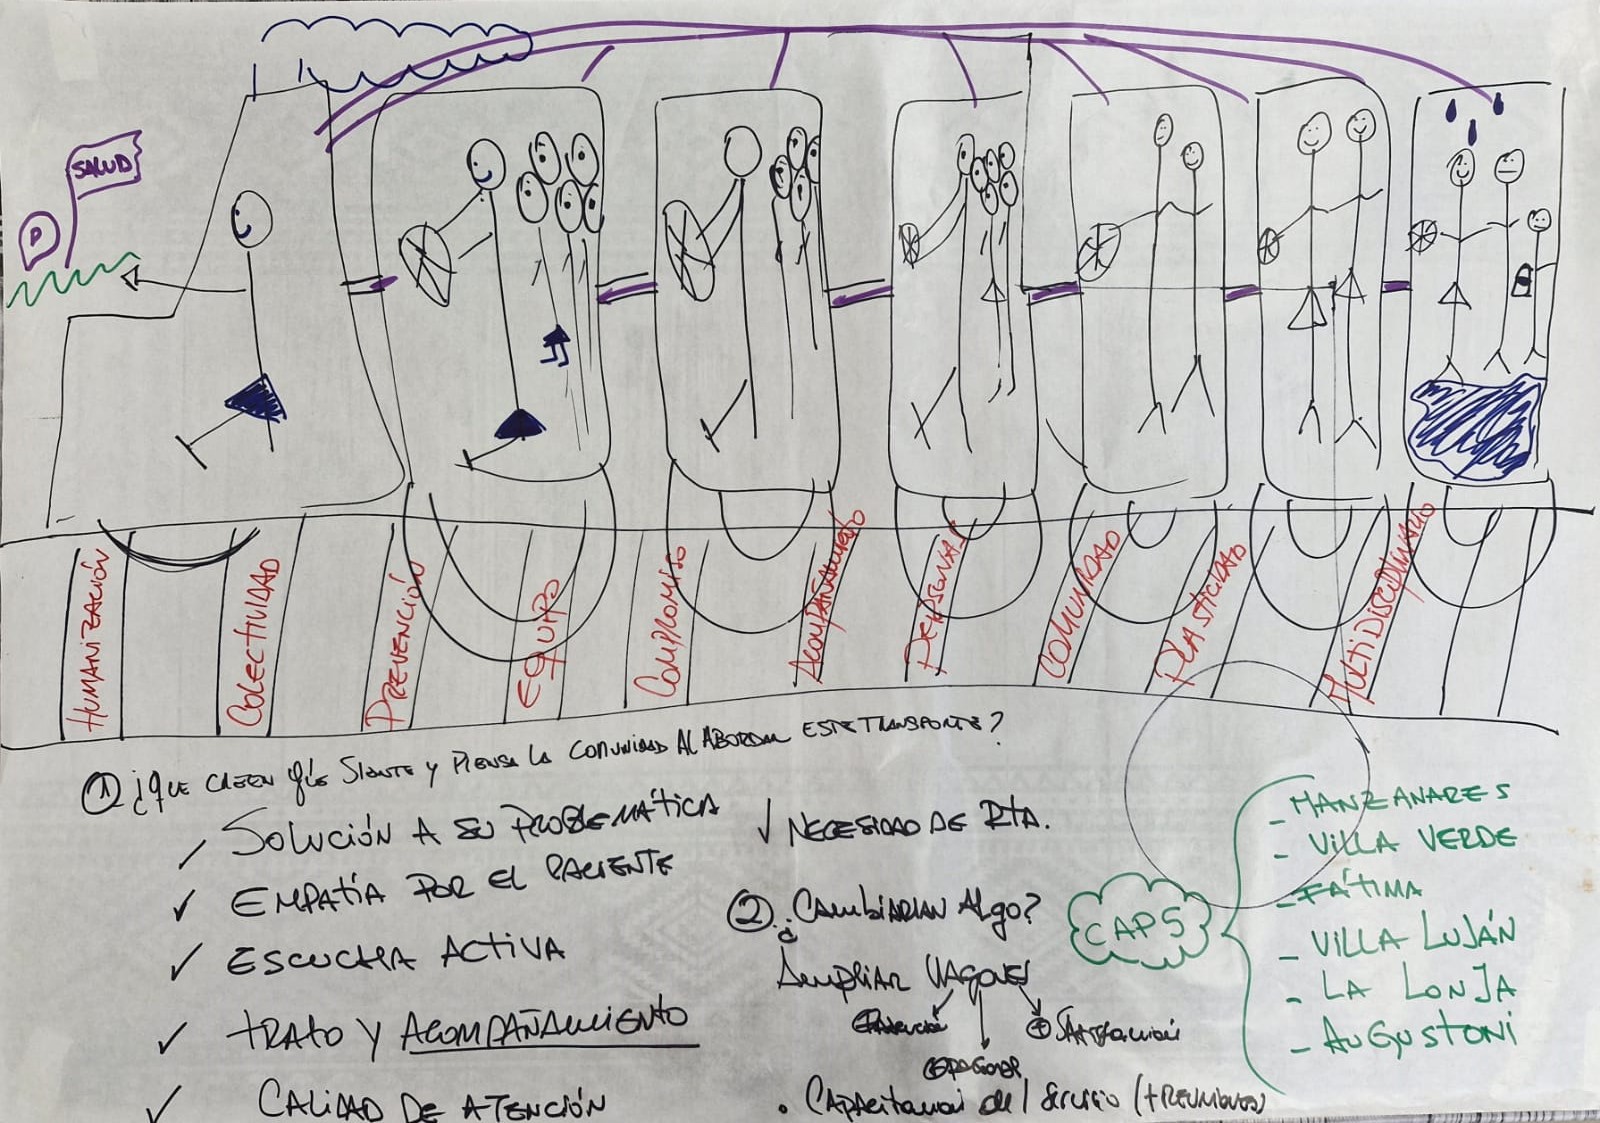 SALUD
P
HUMANIZACIÓN
COLECTIVIDAD
PREVENCIÓN
EQUIPO
COMPROMISO
ACOMPAÑAMIENTO
PERSONAL
COMUNIDAD
PLASTICIDAD
MULTIDISCIPLINARIO
① ¿QUE CREEN QUE SIENTE Y PIENSA LA COMUNIDAD AL ABORDAR ESTE TRANSPORTE?
✓ SOLUCIÓN A SU PROBLEMÁTICA
✓ EMPATÍA POR EL PACIENTE
✓ ESCUCHA ACTIVA
✓ TRATO Y ACOMPAÑAMIENTO
✓ CALIDAD DE ATENCIÓN
✓ NECESIDAD DE RTA.
② ¿CAMBIARIAN ALGO?
AMPLIAR VAGONES
CAPACITACION del SERVICIO (+ REUNIONES)
CAPS
- MANZANARES
- VILLA VERDE
- FÁTIMA
- VILLA LUJÁN
- LA LONJA
- AUGUSTONI